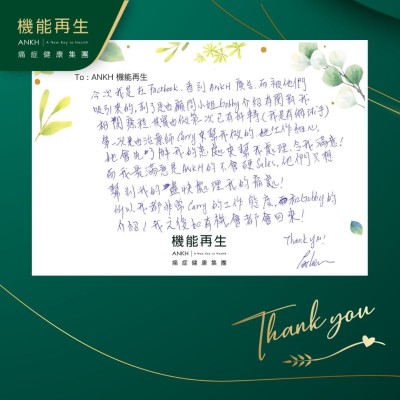 機能再生
ANKH | A New Key to Health
痛症健康集團
To : ANKH 機能再生
今次我是在Facebook, 看到ANKH廣告, 而被他們
吸引來的, 到了店由顧問小姐Gabby介紹有關對我
的療程, 其實由做第一次已有好轉(我是有網球手)
第一次是由治療師Carry來幫我做的她工作細心,
她會先了解我的患處來幫我處理, 令我滿意!
而我最滿意是ANKH的不會硬Sales, 他們只想
幫到我的盡快處理我的痛處!
所以我都非常Carry的工作態度, 和Gabby的
介紹! 我之後如有機會都會回來!
Thank you!
機能再生
ANKH | A New Key to Health
痛症健康集團
Thank you